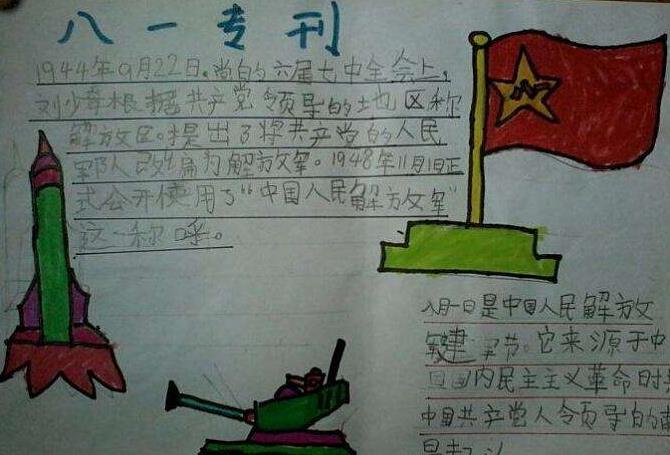 八一专刊
1944年9月22日。党的六届七中全会上,
刘少奇根据共产党领导的地区称
解放区。提出了将共产党的人民
军队人改编为解放军。1948年11月1日正
式公开使用了“中国人民解放军”
这一称呼。
八一
八月一日是中国人民解放
军建军节。它来源于中
国国内民主主义革命时
中国共产党人领导的南
昌起